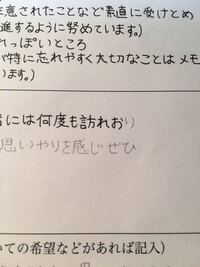 意されたことなど素直に受けとめ
進するように努めています。)
れっぽいところ
が特に忘れやすく大切なことは メモ
います。)
には何度も訪れおり
思いやりを感じぜひ
いての希望などがあれば記入)